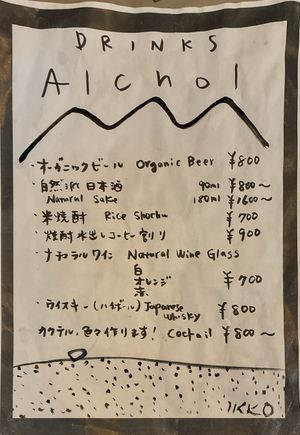 DRINKS
Alchol
・オーガニックビール Organic Beer ¥800
・自然派日本酒 90ml ¥800〜
Natural Sake 180ml ¥1600〜
・米焼酎 Rice Shochu ¥700
・焼酎水出しコーヒー割り ¥900
・ナチュラルワイン Natural Wine Glass
白
オレンジ ¥700
赤
・ウイスキー(ハイボール) Japanese
Whisky ¥800
カクテル、色々作ります! Coctail ¥800〜